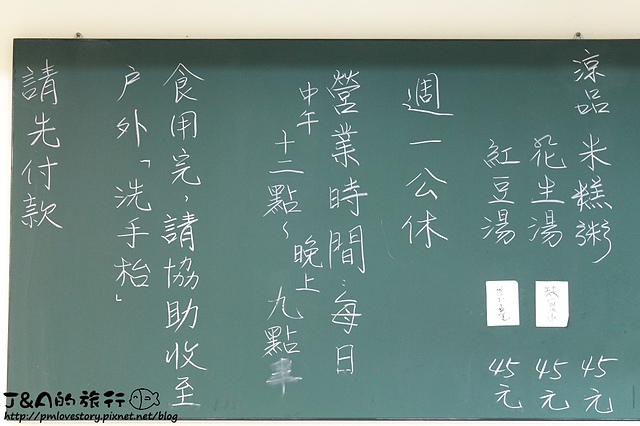 涼品 米糕粥 45元
花生湯 45元
紅豆湯 45元
週一公休
營業時間：每日
中午十二點～晚上九點
食用完，請協助收至
户外「洗手枱」
請先付款
J&A的旅行
http://pmlovestory.pixnet.net/blog